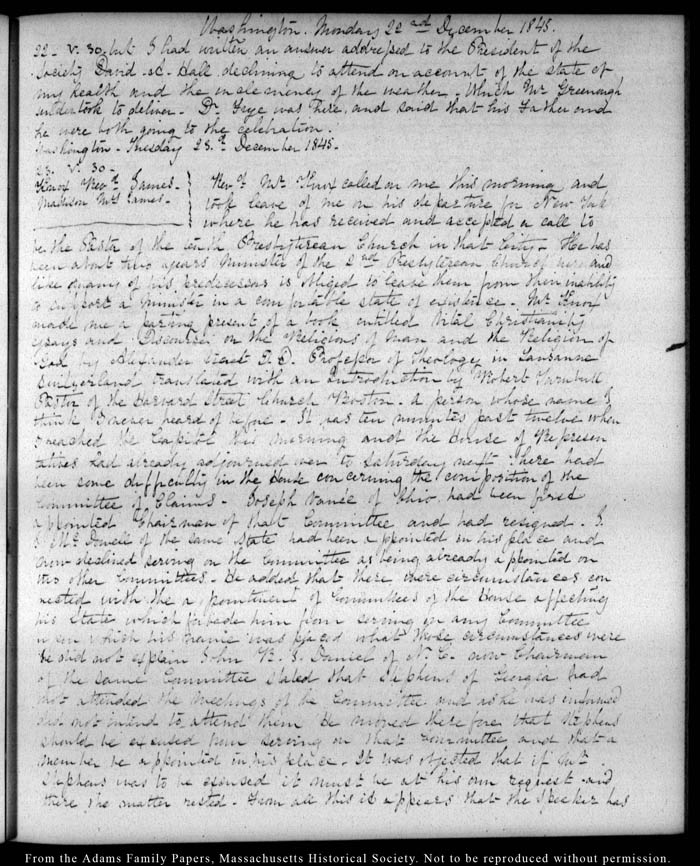 Washington. Monday 22nd December 1845.
22. V. 30. but I had written an answer addressed to the President of the
Society David A. Hall declining to attend on account of the state of
my health and the inclemency of the weather. Which Mr Greenough
undertook to deliver. Dr Frye was there, and said that his Father and
he were both going to the celebration.
Washington. Tuesday 23.d December 1845.
23. V. 30.
Knox Revd James.
Madison Mrs James.
Revd Mr Knox called on me this morning, and
took leave of me on his departure for New York
where he has received and accepted a call to
be the Pastor of the tenth Presbyterean Church in that City. He has
been about two years Minister of the 2nd Presbyterean Church here and
like many of his predecessors is obliged to leave them from their inability
to support a minister in a comfortable state of existence. Mr Knox
made me a parting present of a book, entitled Vital Christianity
essays and Discourses on the Religions of Man and the Religion of
God by Alexander Vinet D.D. Professor of Theology in Lausanne
Switzerland translated with an Introduction by Robert Turnbull
Pastor of the Harvard Street Church Boston. a person whose name I
think I never heard of before. It was ten minutes past twelve when
I reached the Capitol this morning and the House of Represen
tatives had already adjourned over to Saturday next. There had
been some difficulty in the House concerning the composition of the
Committee of Claims. Joseph Vance of Ohio had been first
appointed Chairman of that Committee and had resigned.
of the same State had been appointed in his place and
now declined serving on the Committee as being already appointed on
two other Committees. He added that there were circumstances con
nected with the appointment of Committees of the House affecting
his State which forbade him from serving on any Committee
upon which his name was placed what those circumstances were
he did not explain John R. J. Daniel of N. C. now Chairman
of the same Committee stated that Stephens of Georgia had
not attended the meetings of the Committee and as he was informed
did not intend to attend them he moved therefore that Stephens
should be excused from serving on that Committee and that a
member be appointed in his place. It was objected that if Mr
Stephens was to be excused it must be at his own request and
there the matter rested. From all this it appears that the Speaker has
From the Adams Family Papers, Massachusetts Historical Society. Not to be reproduced without permission.